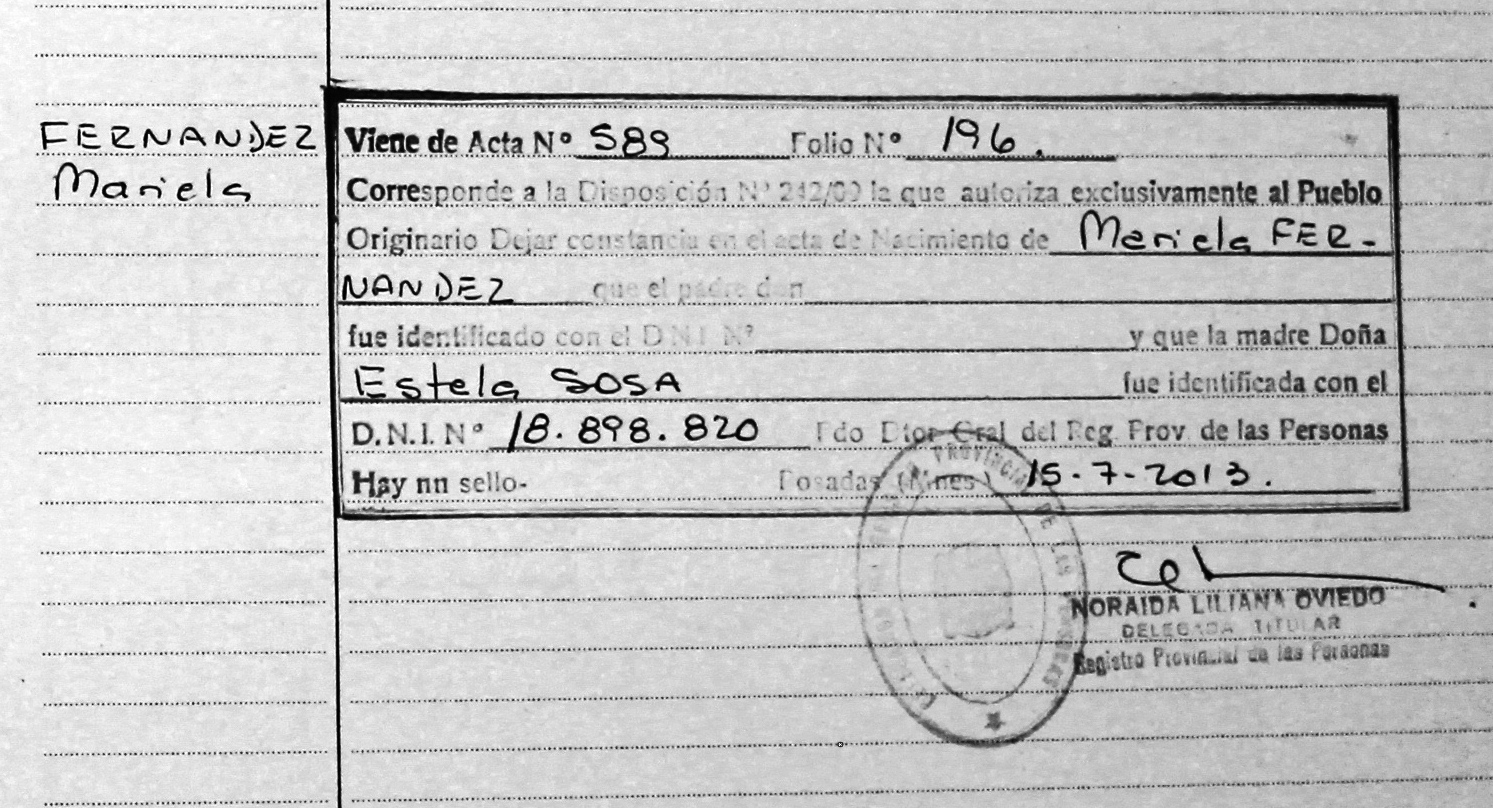 FERNANDEZ
Mariela
Viene de Acta Nº 589 Folio Nº 196.
Corresponde a la Disposición Nº 242/09 la que autoriza exclusivamente al Pueblo
Originario Dejar constancia en el acta de Nacimiento de Mariela FER-
NANDEZ que el padre don
fue identificado con el D.N.I. Nº y que la madre Doña
Estela SOSA fue identificada con el
D.N.I. Nº 18.898.820 Fdo Dtor Gral del Reg. Prov. de las Personas
Hay nn sello- Posadas (Mnes) 15-7-2013.
PROVINCIAL DE LAS
NORAIDA LILIANA OVIEDO
DELEGADA TITULAR
Registro Provincial de las Personas